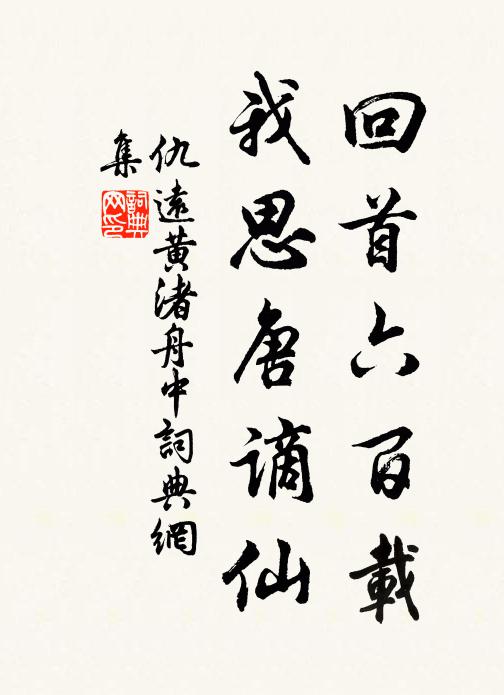 回首六百載
我思唐謫仙
仇遠黃渚舟中詞典網
集
詞典
网印